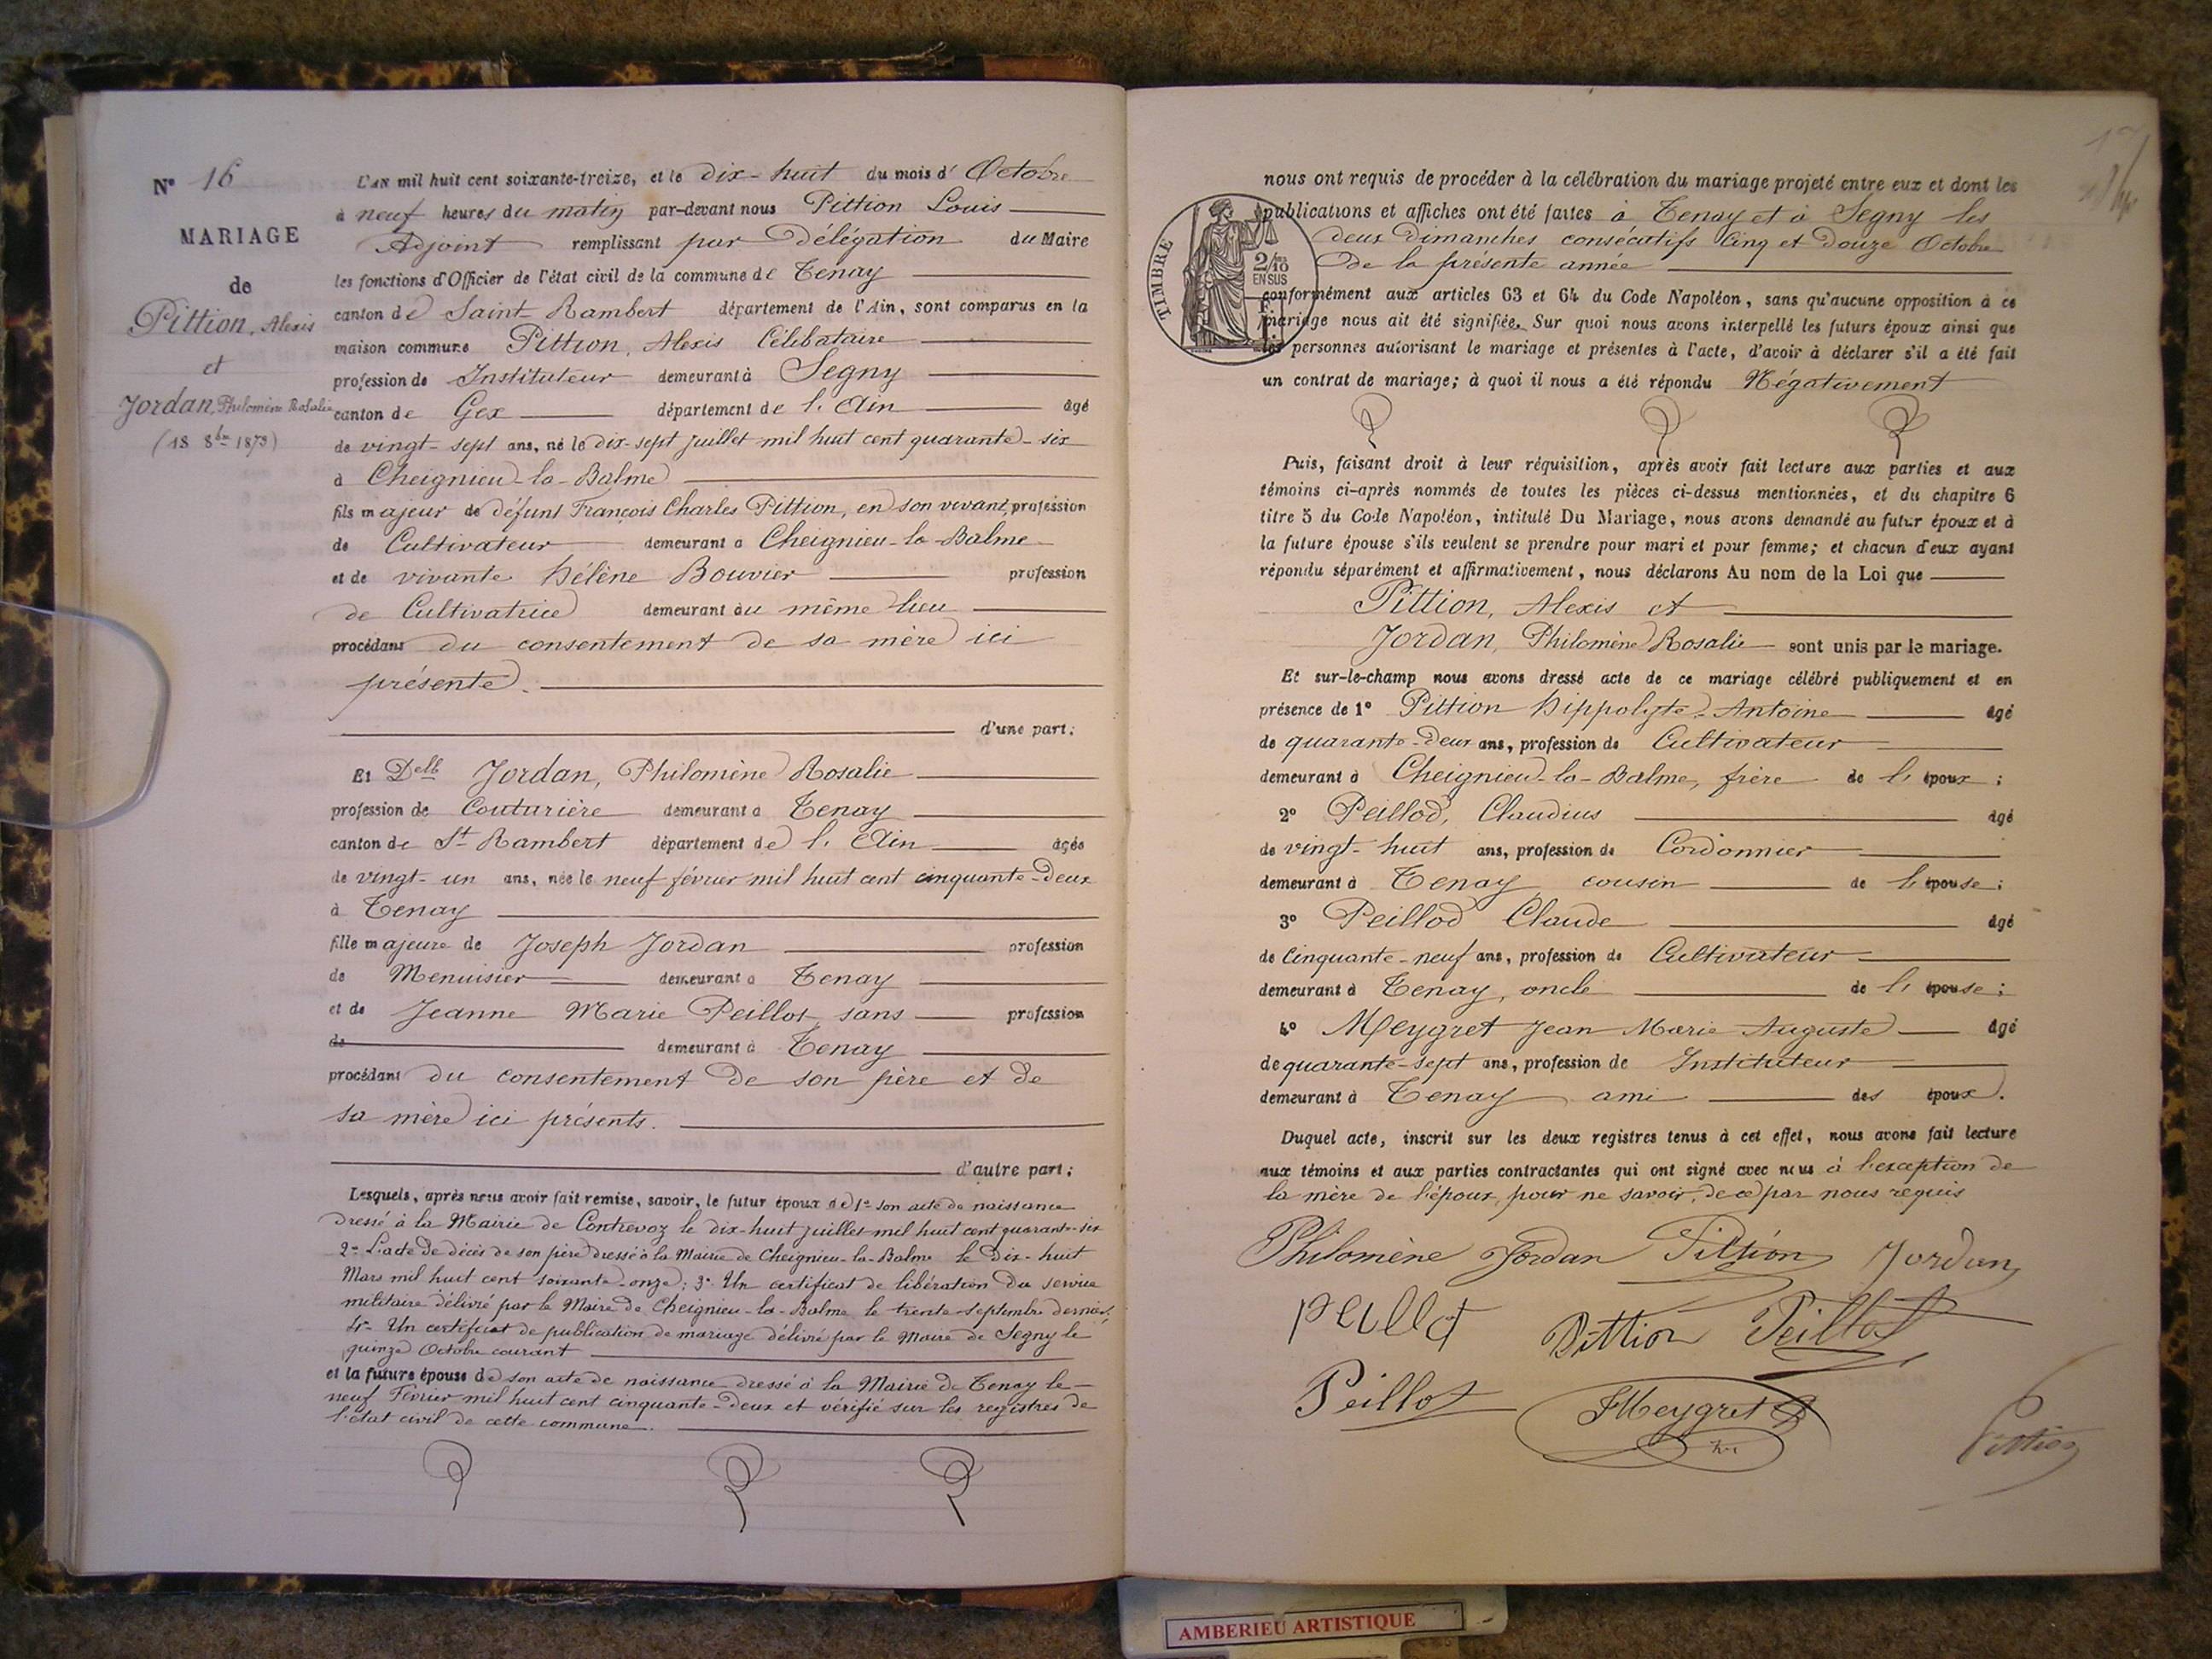 N° 16
MARIAGE
de
Pittion, Alexis
et
Jordan, Philomène Rosalie
(18 8bre 1873)
L'AN mil huit cent soixante-treize, et le dix-huit du mois d'Octobre
à neuf heures du matin par-devant nous Pittion Louis
Adjoint remplissant par Délégation du Maire
les fonctions d'Officier de l'état civil de la commune de Tenay
canton de Saint-Rambert département de l'Ain, sont comparus en la
maison commune Pittion, Alexis Célibataire
profession de Instituteur demeurant à Segny
canton de Gex département de l'Ain âgé
de vingt-sept ans, né le dix-sept juillet mil huit cent quarante-six
à Cheignieu-la-Balme
fils majeur de défunt François Charles Pittion, en son vivant, profession
de Cultivateur demeurant à Cheignieu-la-Balme
et de vivante Hélène Bouvier profession
de Cultivatrice demeurant au même lieu
procédant du consentement de sa mère ici
présente.
d'une part;
Et Delle Jordan, Philomène Rosalie
profession de Couturière demeurant à Tenay
canton de St Rambert département de l'Ain âgée
de vingt-un ans, née le neuf février mil huit cent cinquante-deux
à Tenay
fille majeure de Joseph Jordan profession
de Menuisier demeurant à Tenay
et de Jeanne Marie Peillot, sans profession
de demeurant à Tenay
procédant du consentement de son père et de
sa mère ici présents.
d'autre part;
Lesquels, après nous avoir fait remise, savoir, le futur époux de 1° son acte de naissance
dressé à la Mairie de Contrevoz le dix-huit juillet mil huit cent quarante-six
2° L'acte de décès de son père dressé à la Mairie de Cheignieu-la-Balme le Dix-huit
Mars mil huit cent soixante-onze; 3° Un certificat de libération du service
militaire délivré par le Maire de Cheignieu-la-Balme le trente septembre dernier;
4° Un certificat de publication de mariage délivré par le Maire de Segny le
quinze Octobre courant
et la future épouse de son acte de naissance dressé à la Mairie de Tenay le
neuf Février mil huit cent cinquante-deux et vérifié sur les registres de
l'état civil de cette commune.
17
TIMBRE
2/10 EN SUS
nous ont requis de procéder à la célébration du mariage projeté entre eux et dont les
publications et affiches ont été faites à Tenay et à Segny les
deux Dimanches consécutifs Cinq et Douze Octobre
de la présente année
conformément aux articles 63 et 64 du Code Napoléon, sans qu'aucune opposition à ce
mariage nous ait été signifiée. Sur quoi nous avons interpellé les futurs époux ainsi que
les personnes autorisant le mariage et présentes à l'acte, d'avoir à déclarer s'il a été fait
un contrat de mariage; à quoi il nous a été répondu Négativement
Puis, faisant droit à leur réquisition, après avoir fait lecture aux parties et aux
témoins ci-après nommés de toutes les pièces ci-dessus mentionnées, et du chapitre 6
titre 5 du Code Napoléon, intitulé Du Mariage, nous avons demandé au futur époux et à
la future épouse s'ils veulent se prendre pour mari et pour femme; et chacun d'eux ayant
répondu séparément et affirmativement, nous déclarons Au nom de la Loi que
Pittion, Alexis et
Jordan, Philomène Rosalie sont unis par le mariage.
Et sur-le-champ nous avons dressé acte de ce mariage célébré publiquement et en
présence de 1° Pittion Hippolyte-Antoine âgé
de quarante-deux ans, profession de Cultivateur
demeurant à Cheignieu-la-Balme, frère de l'époux;
2° Peillod, Claudius âgé
de vingt-huit ans, profession de Cordonnier
demeurant à Tenay cousin de l'épouse;
3° Peillod Claude âgé
de Cinquante-neuf ans, profession de Cultivateur
demeurant à Tenay, oncle de l'épouse;
4° Meygret Jean Marie Auguste âgé
de quarante-sept ans, profession de Instituteur
demeurant à Tenay ami des époux.
Duquel acte, inscrit sur les deux registres tenus à cet effet, nous avons fait lecture
aux témoins et aux parties contractantes qui ont signé avec nous à l'exception de
la mère de l'époux, pour ne savoir, de ce par nous requis
Philomène Jordan Pittion Jordan
Peillot Pittion Peillot
Peillot Meygret
Pittion
AMBERIEU ARTISTIQUE